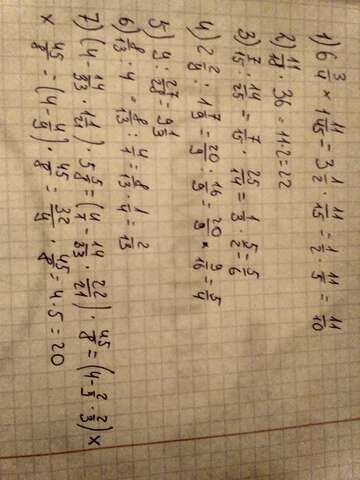 1) 6 3/4 × 11/45 = 3 1/2 · 11/15 = 1/2 · 11/5 = 11/10
2) 11/18 · 36 = 11·2 = 22
3) 7/15 : 14/25 = 7/15 · 25/14 = 1/3 · 5/2 = 5/6
4) 2 2/9 : 1 7/9 = 20/9 : 16/9 = 20/9 × 9/16 = 5/4
5) 9 : 27/28 = 9 1/3
6) 8/13 : 4 = 8/13 : 4/1 = 8/13 · 1/4 = 2/13
7) (4 - 14/33 · 1 1/21) · 5 5/8 = (4/1 - 14/33 · 22/21) · 45/8 = (4 - 2/3 · 2/3) ×
× 45/8 = (4 - 4/9) · 45/8 = 32/9 · 45/8 = 4 · 5 = 20